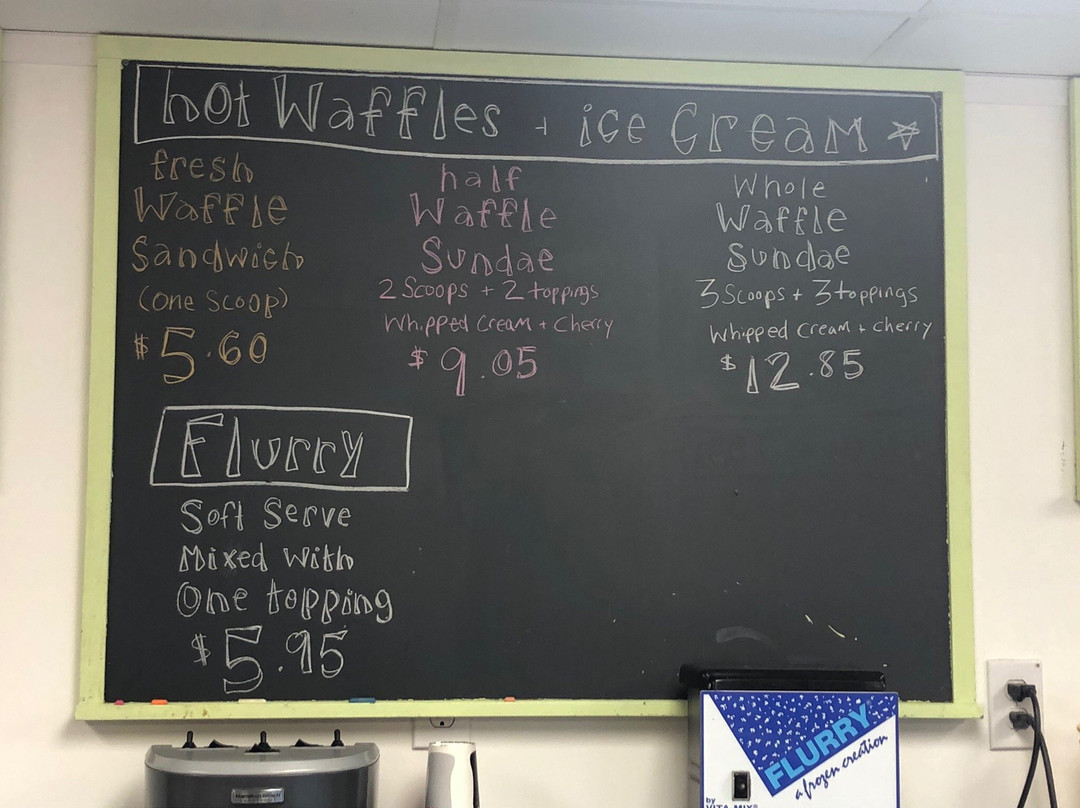 hot Waffles + ice Cream
fresh
Waffle
Sandwich
(one Scoop)
$5.60
half
Waffle
Sundae
2 Scoops + 2 toppings
Whipped Cream + Cherry
$9.05
Whole
Waffle
Sundae
3 Scoops + 3 toppings
Whipped Cream + cherry
$12.85
Flurry
Soft Serve
Mixed With
One topping
$5.95
FLURRY
a frozen creation
by
VITA-MIX®